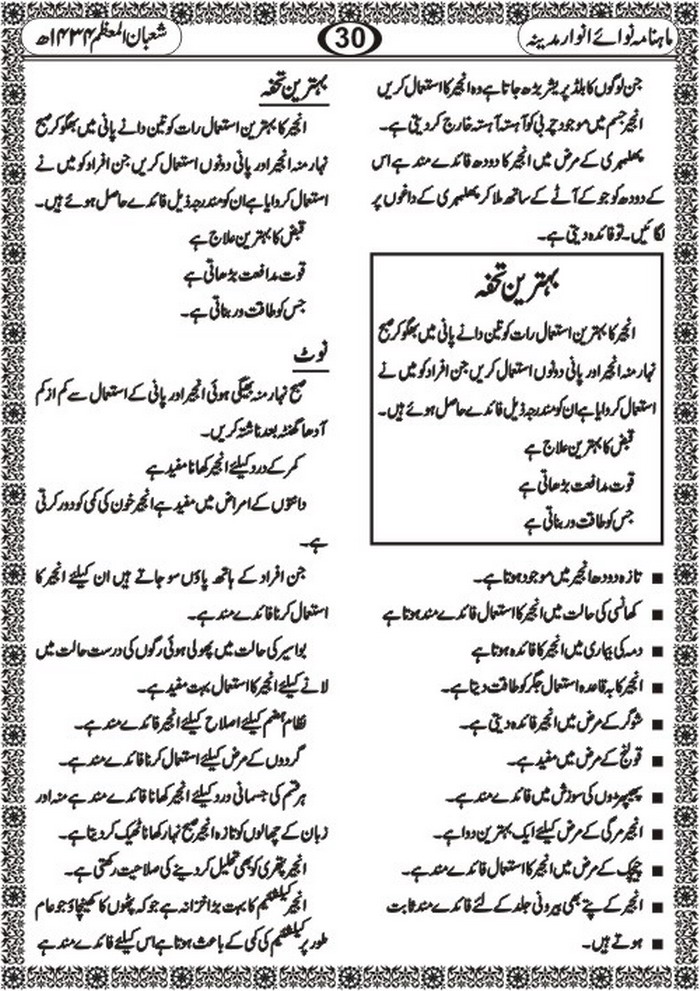 ماہنامہ نوائے انوار مدینہ
30
شعبان المعظم ۱۴۳۴ھ
جن لوگوں کا بلڈ پریشر بڑھ جاتا ہے وہ انجیر کا استعمال کریں
انجیر جسم میں موجود چربی کو آہستہ آہستہ خارج کر دیتی ہے۔
پھلبہری کے مرض میں انجیر کا دودھ فائدے مند ہے اس
کے دودھ کو جو کے آٹے کے ساتھ ملا کر پھلبہری کے داغوں پر
لگائیں۔ تو فائدہ دیتی ہے۔
بہترین تحفہ
انجیر کا بہترین استعمال رات کو تین دانے پانی میں بھگو کر صبح
نہار منہ انجیر اور پانی دونوں استعمال کریں جن افراد کو میں نے
استعمال کروایا ہے ان کو مندرجہ ذیل فائدے حاصل ہوئے ہیں۔
قبض کا بہترین علاج ہے
قوت مدافعت بڑھاتی ہے
جس کو طاقت ور بناتی ہے
■ تازہ دودھ انجیر میں موجود ہوتا ہے۔
■ کھانسی کی حالت میں انجیر کا استعمال فائدے مند ہوتا ہے
■ دمہ کی بیماری میں انجیر کا فائدہ ہوتا ہے
■ انجیر کا بہ قاعدہ استعمال جگر کو طاقت دیتا ہے۔
■ شوگر کے مرض میں انجیر فائدہ دیتی ہے۔
■ قولنج کے مرض میں مفید ہے۔
■ پھیپھڑوں کی سوزش میں فائدے مند ہے۔
■ انجیر مرگی کے مرض کیلئے ایک بہترین دوا ہے۔
■ چیچک کے مرض میں انجیر کا استعمال فائدے مند ہے۔
■ انجیر کے پتے بھی بیرونی جلد کے لئے فائدے مند ثابت
■ ہوتے ہیں۔
بہترین تحفہ
انجیر کا بہترین استعمال رات کو تین دانے پانی میں بھگو کر صبح
نہار منہ انجیر اور پانی دونوں استعمال کریں جن افراد کو میں نے
استعمال کروایا ہے ان کو مندرجہ ذیل فائدے حاصل ہوئے ہیں۔
قبض کا بہترین علاج ہے
قوت مدافعت بڑھاتی ہے
جس کو طاقت ور بناتی ہے۔
نوٹ
صبح نہار منہ بھیگی ہوئی انجیر اور پانی کے استعمال سے کم از کم
آدھا گھنٹہ بعد ناشتہ کریں۔
کمر کے درد کیلئے انجیر کھانا مفید ہے
دانتوں کے امراض میں مفید ہے انجیر خون کی کمی کو دور کرتی
ہے۔
جن افراد کے ہاتھ پاؤں سو جاتے ہیں ان کیلئے انجیر کا
استعمال کرنا فائدے مند ہے۔
بواسیر کی حالت میں پھولی ہوئی رگوں کی درست حالت میں
لانے کیلئے انجیر کا استعمال بہت مفید ہے۔
نظام ہضم کیلئے اصلاح کیلئے انجیر فائدے مند ہے۔
گردوں کے مرض کیلئے استعمال کرنا فائدے مند ہے۔
ہر قسم کی جسمانی درد کیلئے انجیر کھانا فائدے مند ہے منہ اور
زبان کے چھالوں کو تازہ انجیر صبح نہار کھانا ٹھیک کر دیتا ہے۔
انجیر پتھری کو بھی تحلیل کر دینے کی صلاحیت رکھتی ہے۔
انجیر کیلشئیم کا بہت بڑا خزانہ ہے جو کہ پٹھوں کا کھینچاؤ جو عام
طور پر کیلشئیم کی کمی کے باعث ہوتا ہے اس کیلئے فائدے مند ہے